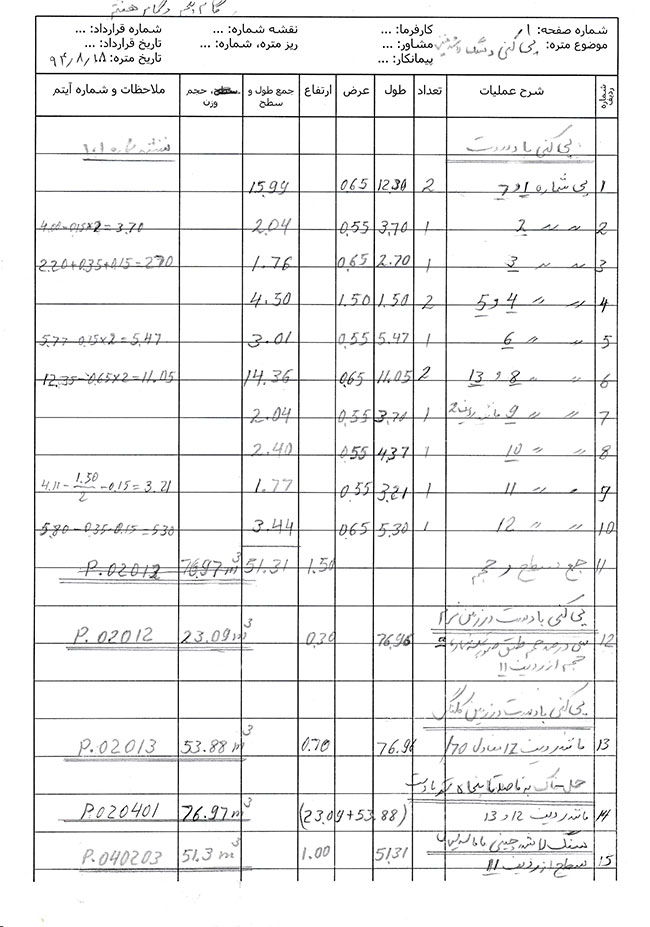 گام دهم و گام هفتم
شماره صفحه: 1/ کارفرما: ... نقشه شماره: ... شماره قرارداد: ...
موضوع متره: پی کنی و سنگ لاشه چینی مشاور: ... ریز متره، شماره: ... تاریخ قرارداد: ...
پیمانکار: ... تاریخ متره: ۹۴/۸/۱۸
شماره ردیف شرح عملیات تعداد طول عرض ارتفاع جمع طول و سطح سطح، حجم وزن ملاحظات و شماره آیتم
پی کنی با دست نقشه شماره 101
1 پی شماره 1 و 7 2 12.30 0.65 15.99
2 〃 〃 2 1 3.70 0.55 2.04 4.00-0.15×2=3.70
3 〃 〃 3 1 2.70 0.65 1.76 2.20+0.35+0.15=2.70
4 〃 〃 4 و 5 2 1.50 1.50 4.50
5 〃 〃 6 1 5.47 0.55 3.01 5.77-0.15×2=5.47
6 〃 〃 8 و 13 2 11.05 0.65 14.36 12.35-0.65×2=11.05
7 〃 〃 9 مانند ردیف 2 1 3.70 0.55 2.04
8 〃 〃 10 1 4.37 0.55 2.40
9 〃 〃 11 1 3.21 0.55 1.77 4.11-1.50/2-0.15=3.21
10 〃 〃 12 1 5.30 0.65 3.44 5.80-0.35-0.15=5.30
11 جمع سطح و حجم 1.50 51.31 76.97 m³ P.02012
پی کنی با دست در زمین نرم
12 سی درصد حجم طبق صورتجلسه 76.96 0.30 23.09 m³ P.02012
حجم از ردیف 11
پی کنی با دست در زمین کلنگی
13 مانند ردیف 12 معادل 70/ 76.96 0.70 53.88 m³ P.02013
حمل خاک به فاصله تا پنجاه متر با دست
14 مانند ردیف 12 و 13 (23.09+53.88) 76.97 m³ P.020401
سنگ لاشه چینی با ملات
15 سطح از ردیف 11 51.31 1.00 51.3 m³ P.040203